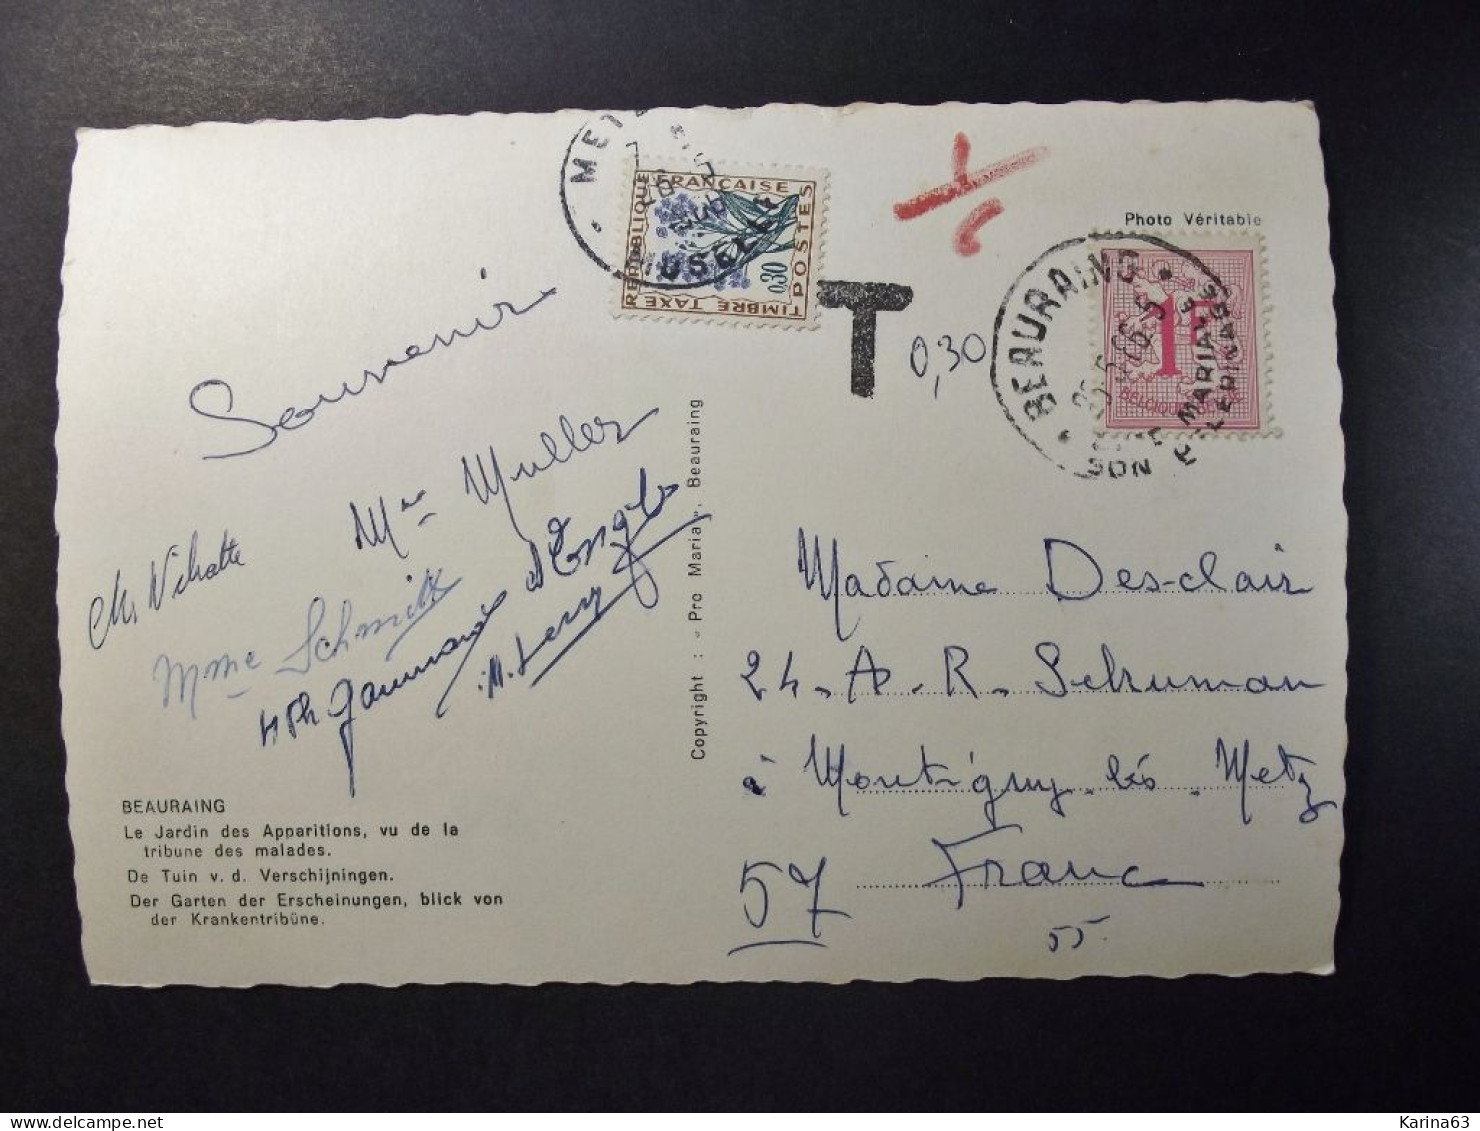 METZ
MOSELLE
RÉPUBLIQUE FRANÇAISE
POSTES
0,30
TIMBRE TAXE
T
0,30
Photo Véritable
BEAURAING
1F
BELGIQUE-BELGIE
SON
MARIALE
PELERINAGES
Souvenir
Mme Muller
Mme Schmitt
BEAURAING
Le Jardin des Apparitions, vu de la
tribune des malades.
De Tuin v. d. Verschijningen.
Der Garten der Erscheinungen, blick von
der Krankentribüne.
Copyright : « Pro Maria », Beauraing
Madame Des-clair
24. A. R. Schuman
à Montigny les Metz
57 France
55
Karina63